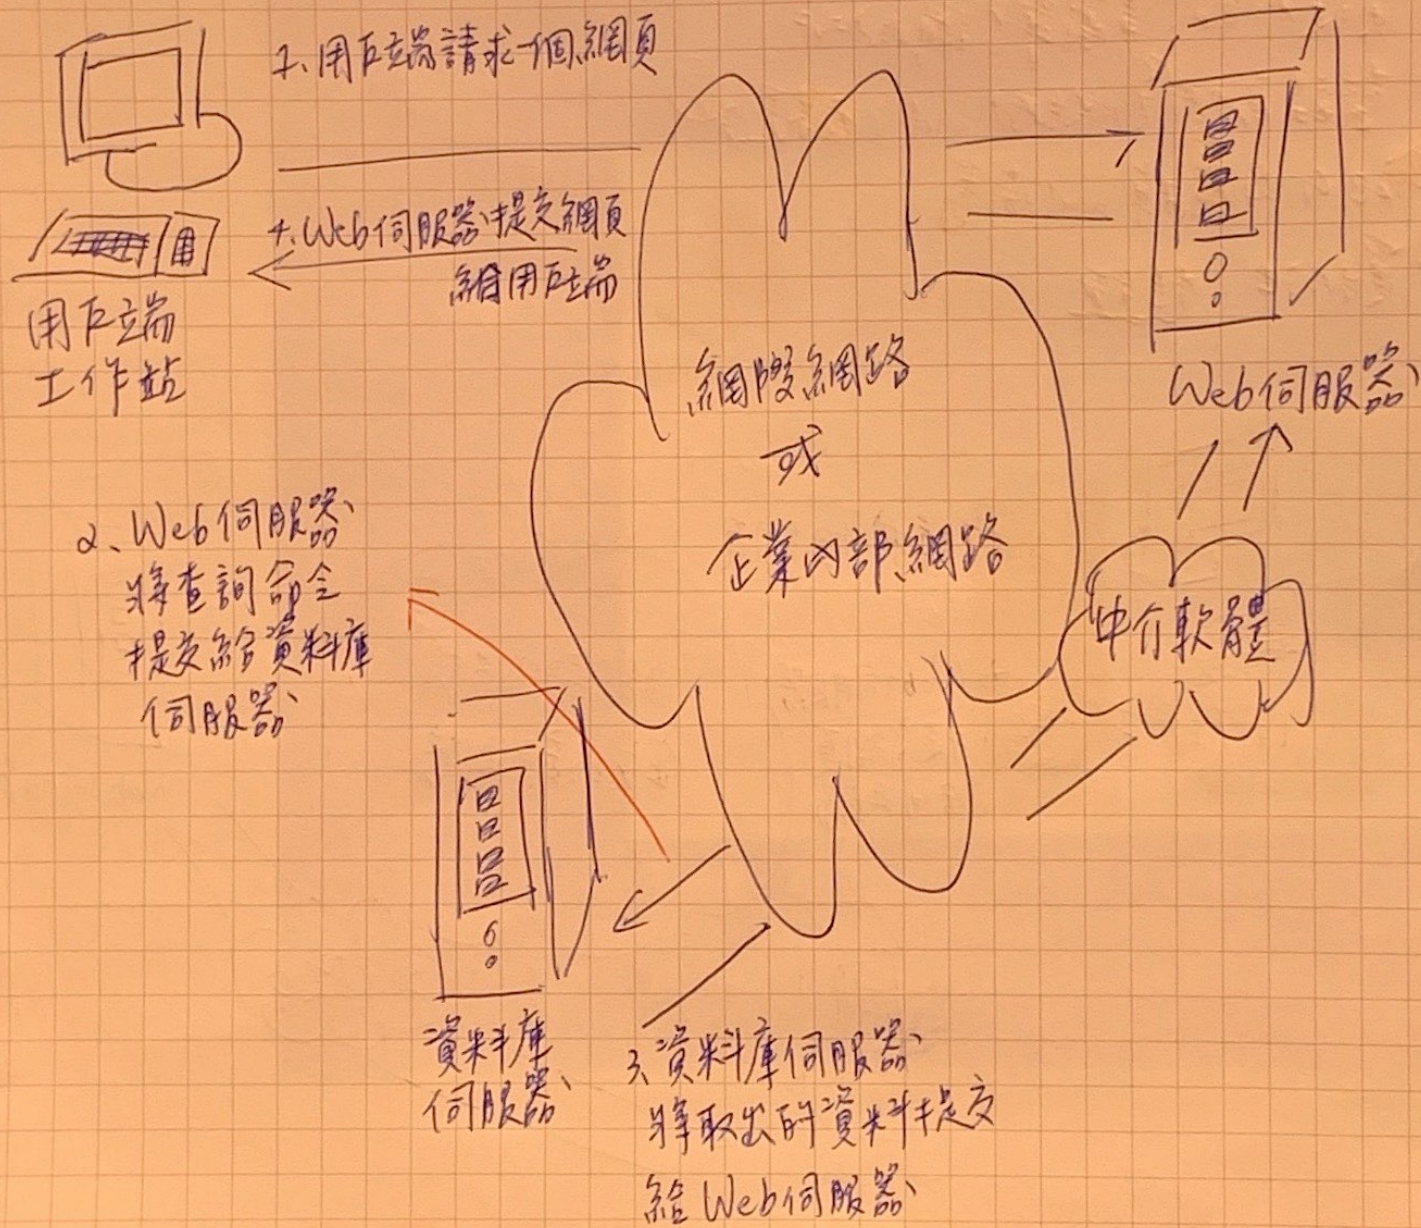 1、用戶端請求一個網頁
4、Web伺服器提交網頁
給用戶端
用戶端
工作站
網際網路
或
企業內部網路
Web伺服器
2、Web伺服器
將查詢命令
提交給資料庫
伺服器
中介軟體
資料庫
伺服器
3、資料庫伺服器
將取出的資料提交
給Web伺服器